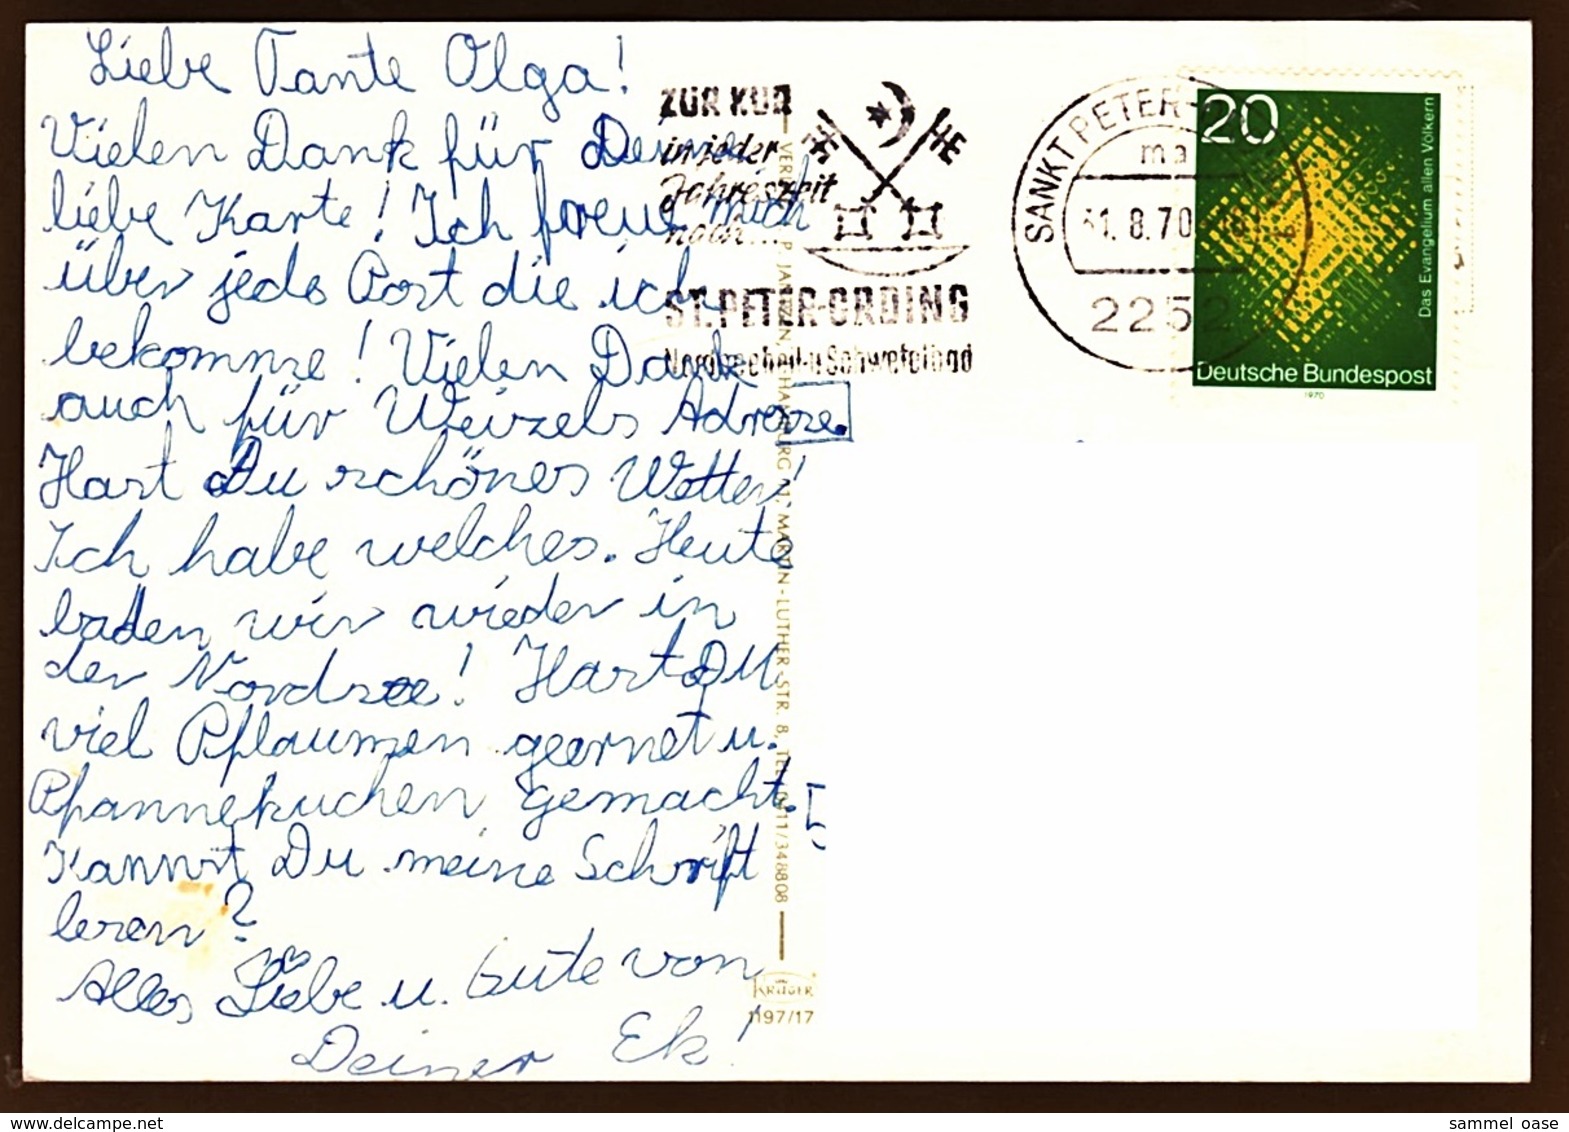 Liebe Tante Olga!
Vielen Dank für Deine
liebe Karte! Ich freue mich
über jede Post die ich
bekomme! Vielen Dank
auch für Weizels Adresse.
Hast Du schönes Wetter!
Ich habe welches. Heute
baden wir wieder in
der Nordsee! Hast Du
viel Pflaumen geernet u.
Pfannekuchen gemacht.
Kannst Du meine Schrift
lesen?
Alles Liebe u. Gute von
Deiner Ek!
ZUR KUR
in jeder
Jahreszeit
nach...
ST. PETER-ORDING
Nordseeheil-u Schwefelbad
SANKT PETER-
31.8.70
2252
20
Das Evangelium allen Völkern
Deutsche Bundespost
1970
HAMBURG 1, MARTIN-LUTHER-STR. 8, TEL. 0411/348808
KRÜGER
1197/17
delcampe.net
sammel_oase